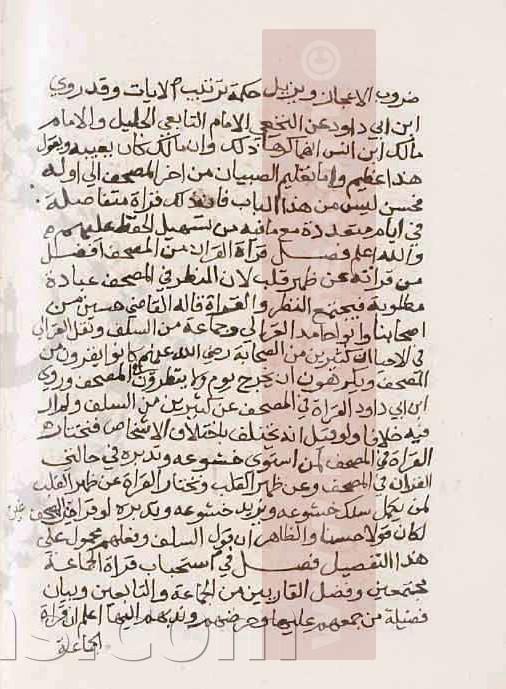 ضروب الاعجاز ويزيل حكمة ترتيب الايات وقد روي
ابن ابي داود عن النخعي الامام التابعي الجليل والامام
مالك ابن انس انهما كرها ذلك وان مالكا كان يعيبه ويقول
هذا عظيم واما تعليم الصبيان من اخر المصحف الي اوله
فحسن ليس من هذا الباب فان ذلك قراة متفاصلة
في ايام متعددة مع ما فيه من تسهيل الحفظ عليهم
والله اعلم فصل قرأة القران من المصحف افضل
من قراته عن ظهر قلب لان النظر في المصحف عبادة
مطلوبة فيجتمع النظر والقراة قاله القاضي حسين من
اصحابنا وابو حامد الغزالي وجماعة من السلف ونقل الغزالي
في الاحيا ان كثيرين من الصحابة رضي الله عنهم كانوا يقرون من
المصحف ويكرهون ان يخرج يوم ولا ينظرون في المصحف وروي
ابن ابي داود القراة في المصحف عن كثيرين من السلف ولم ار
فيه خلافا ولو قيل انه يختلف باختلاف الاشخاص فيختار
القراة في المصحف لمن استوي خشوعه وتدبره في حالتي
القران في المصحف وعن ظهر القلب ويختار القراة عن ظهر القلب
لمن يكمل بذلك خشوعه ويزيد خشوعه وتدبره لو قرا في المصحف
لكان قولا حسنا والظاهر ان قول السلف وفعلهم محمول علي
هذا التفصيل فصل في استحباب قراة الجماعة
مجتمعين وفضل القاريين من الجماعة والتابعين وبيان
فضيلة من جمعهم عليها وحرضهم وندبهم اليها اعلم ان قراة
الجماعة